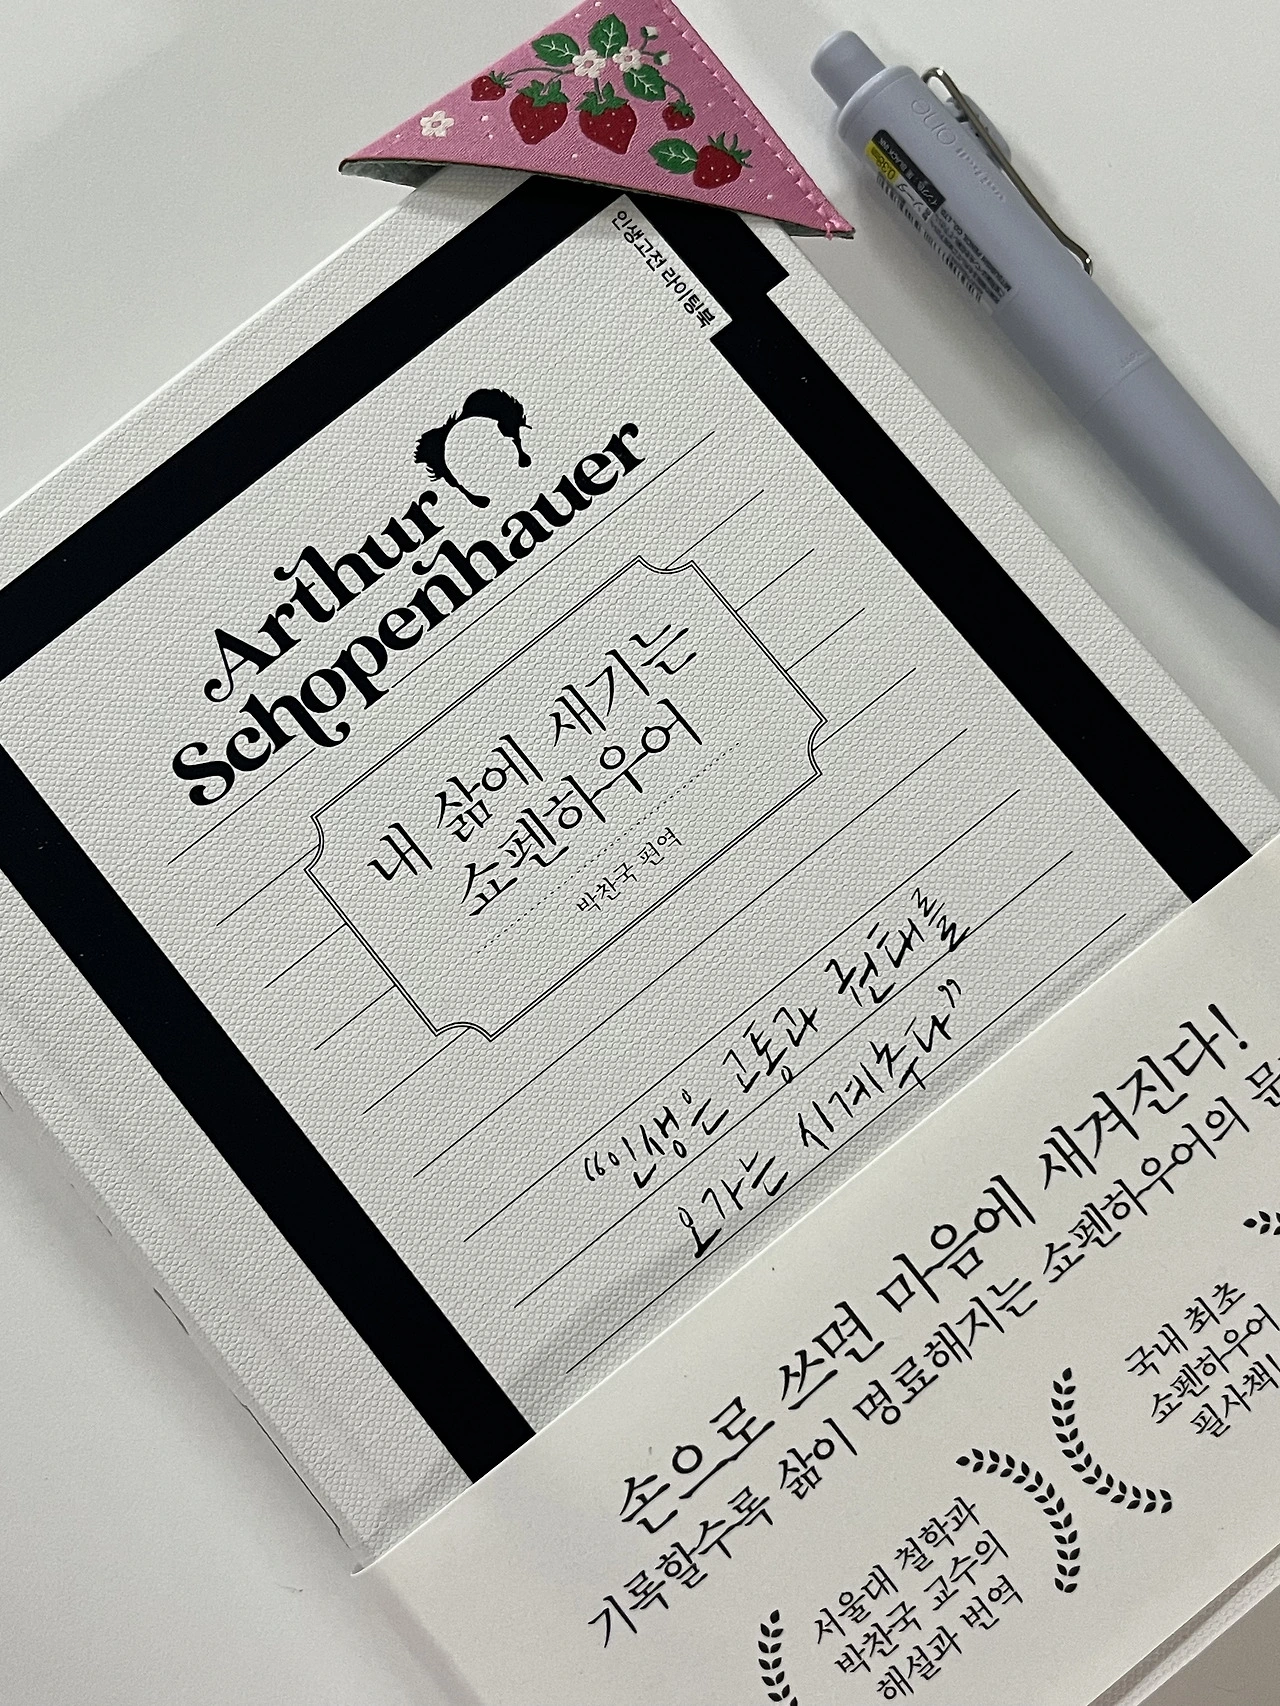 인생고전 라이팅북
Arthur
Schopenhauer
내 삶에 새기는
쇼펜하우어
박찬국 편역
“인생은 고통과 권태를
오가는 시계추다”
손으로 쓰면 마음에 새겨진다!
기록할수록 삶이 명료해지는 쇼펜하우어의
서울대 철학과
박찬국 교수의
해설과 번역
국내 최초
쇼펜하우어
필사책!
uni-ball One
0.38
BLACK INK